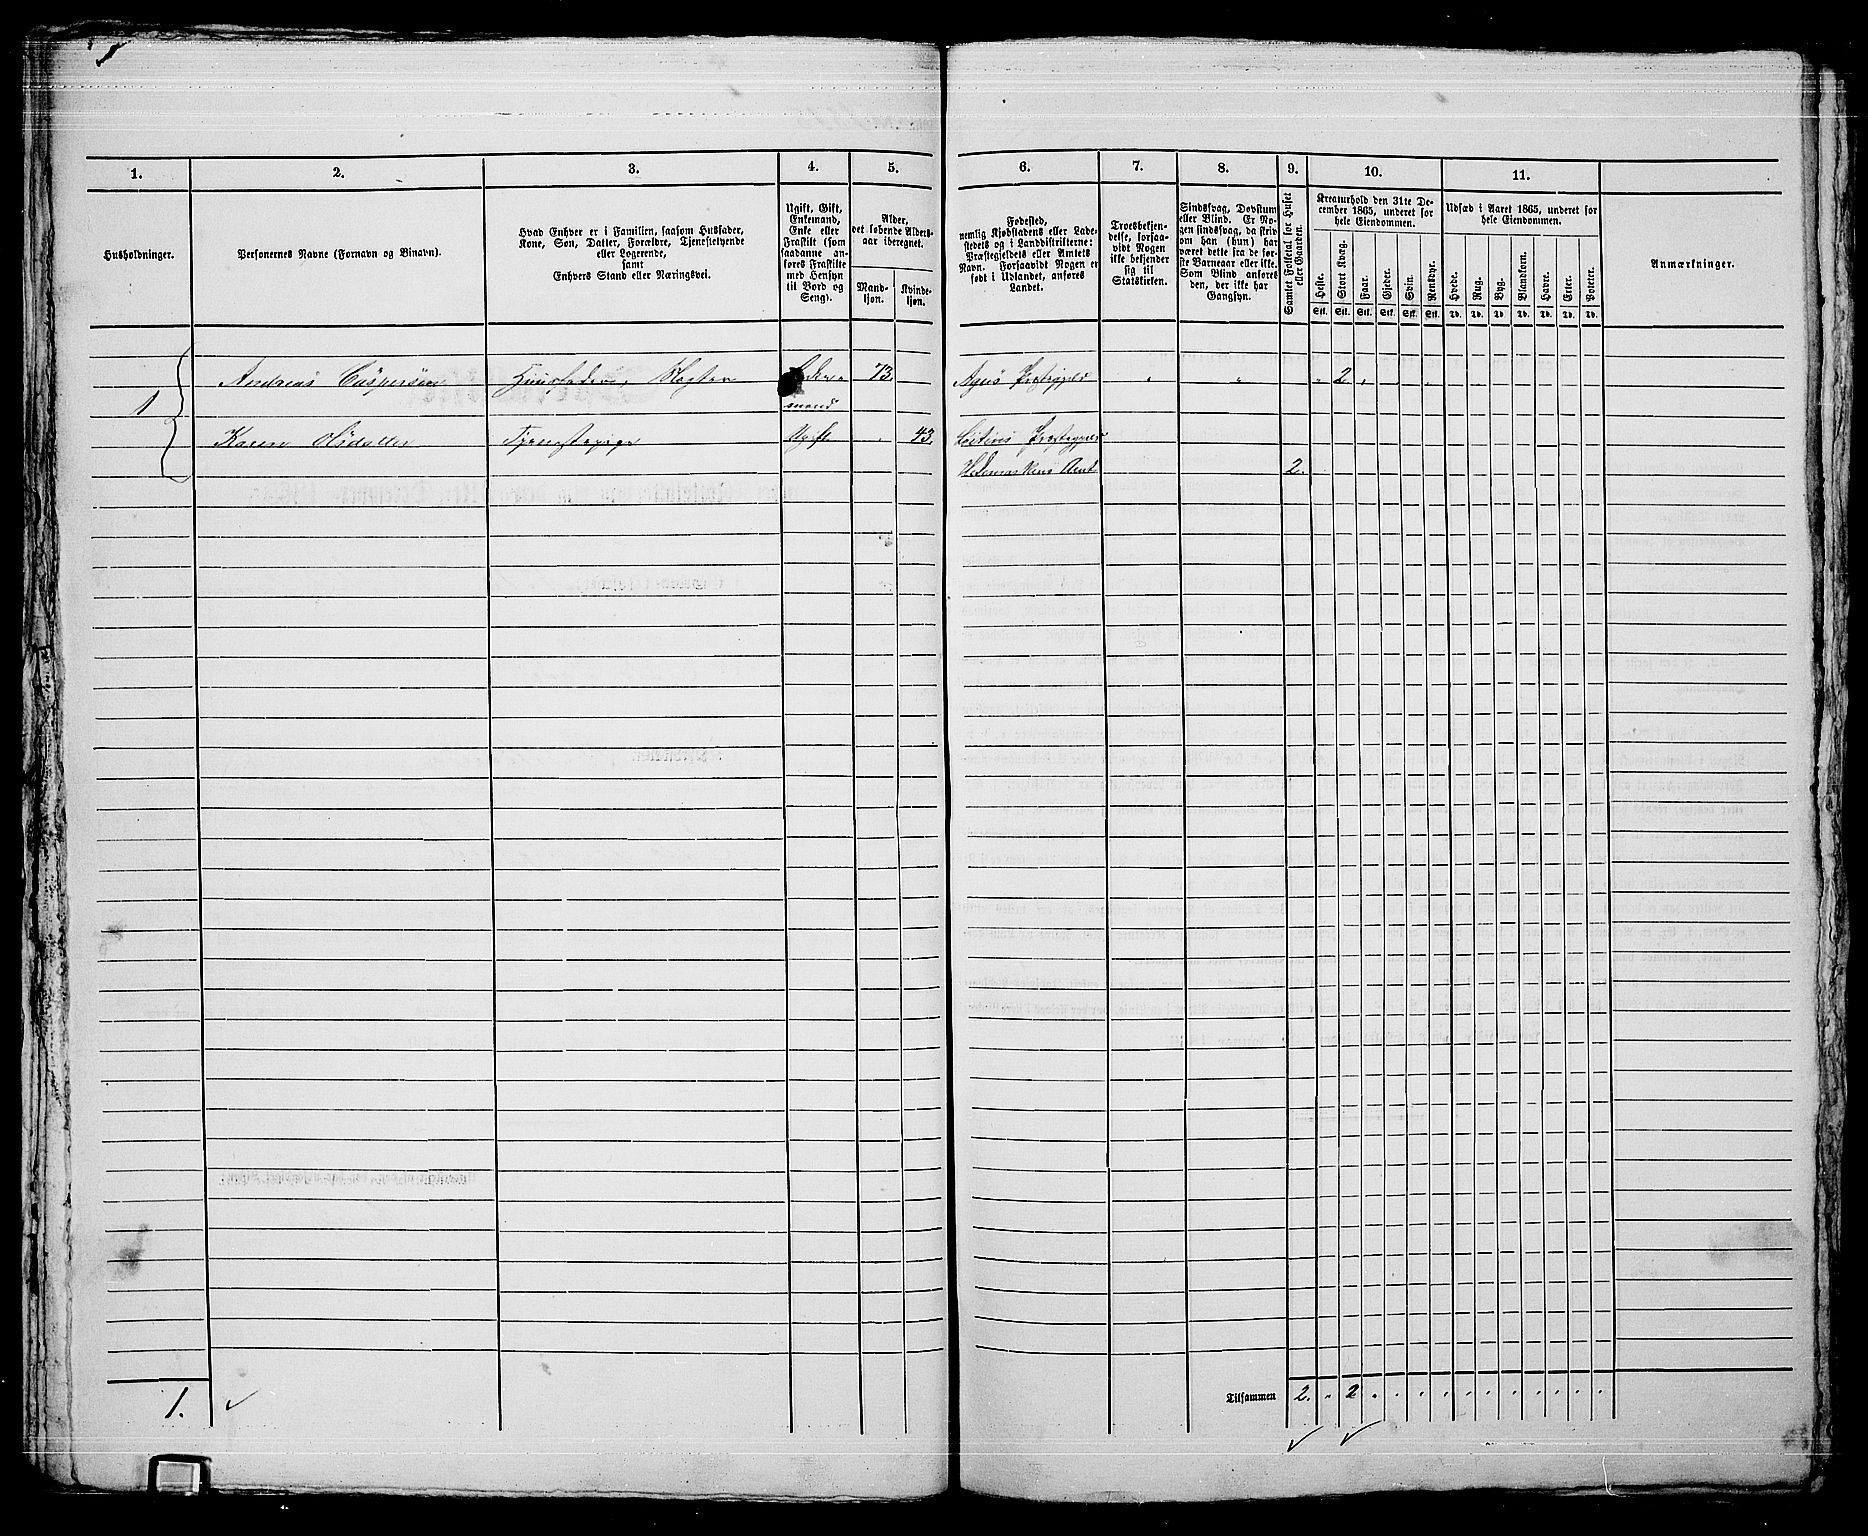 1.
2.
3.
4.
5.
6.
7.
8.
9.
10.
11.
Husholdninger.
Personernes Navne (Fornavn og Binavn).
Hvad Enhver er i Familien, saasom Husfader,
Kone, Søn, Datter, Forældre, Tjenestetyende
eller Logerende,
samt
Enhvers Stand eller Næringsvei.
Ugift, Gift,
Enkemand,
Enke eller
Fraskilt (som
saadanne an-
føres Fraskilte
med Hensyn
til Bord og
Seng).
Alder,
det løbende Alders-
aar iberegnet.
Mand-
kjøn.
Kvinde-
kjøn.
Fødested,
nemlig Kjøbstadens eller Lade-
stedets og i Landdistrikterne:
Præstegjeldets eller Amtets
Navn. Forsaavidt Nogen er
født i Udlandet, anføres
Landet.
Troesbekjen-
delse, forsaa-
vidt Nogen
ikke bekjender
sig til
Statskirken.
Sindssvag, Døvstum
eller Blind. Er No-
gen sindssvag, da skriv
om han (hun) har
været dette fra de før-
ste Barneaar eller ikke.
Som Blind anføres
den, der ikke har
Gangsyn.
Samlet Folketal for Huset
eller Gaarden.
Kreaturhold den 31te De-
cember 1865, underet for
hele Eiendommen.
Heste. Stort Kvæg. Faar. Gjeder. Svin. Rensdyr.
Stk. Stk. Stk. Stk. Stk. Stk.
Udsæd i Aaret 1865, underet for
hele Eiendommen.
Hvede. Rug. Byg. Blandkorn. Havre. Erter. Poteter.
Td. Td. Td. Td. Td. Td. Td.
Anmærkninger.
1 Andreas Caspersen Huusfader, Enke-
mand 73. Præstegjeld 2
Karen Tjenestepige Ugift 43. Præstegjeld
Hedemarkens Amt 2.
1. Tilsammen 2. 2